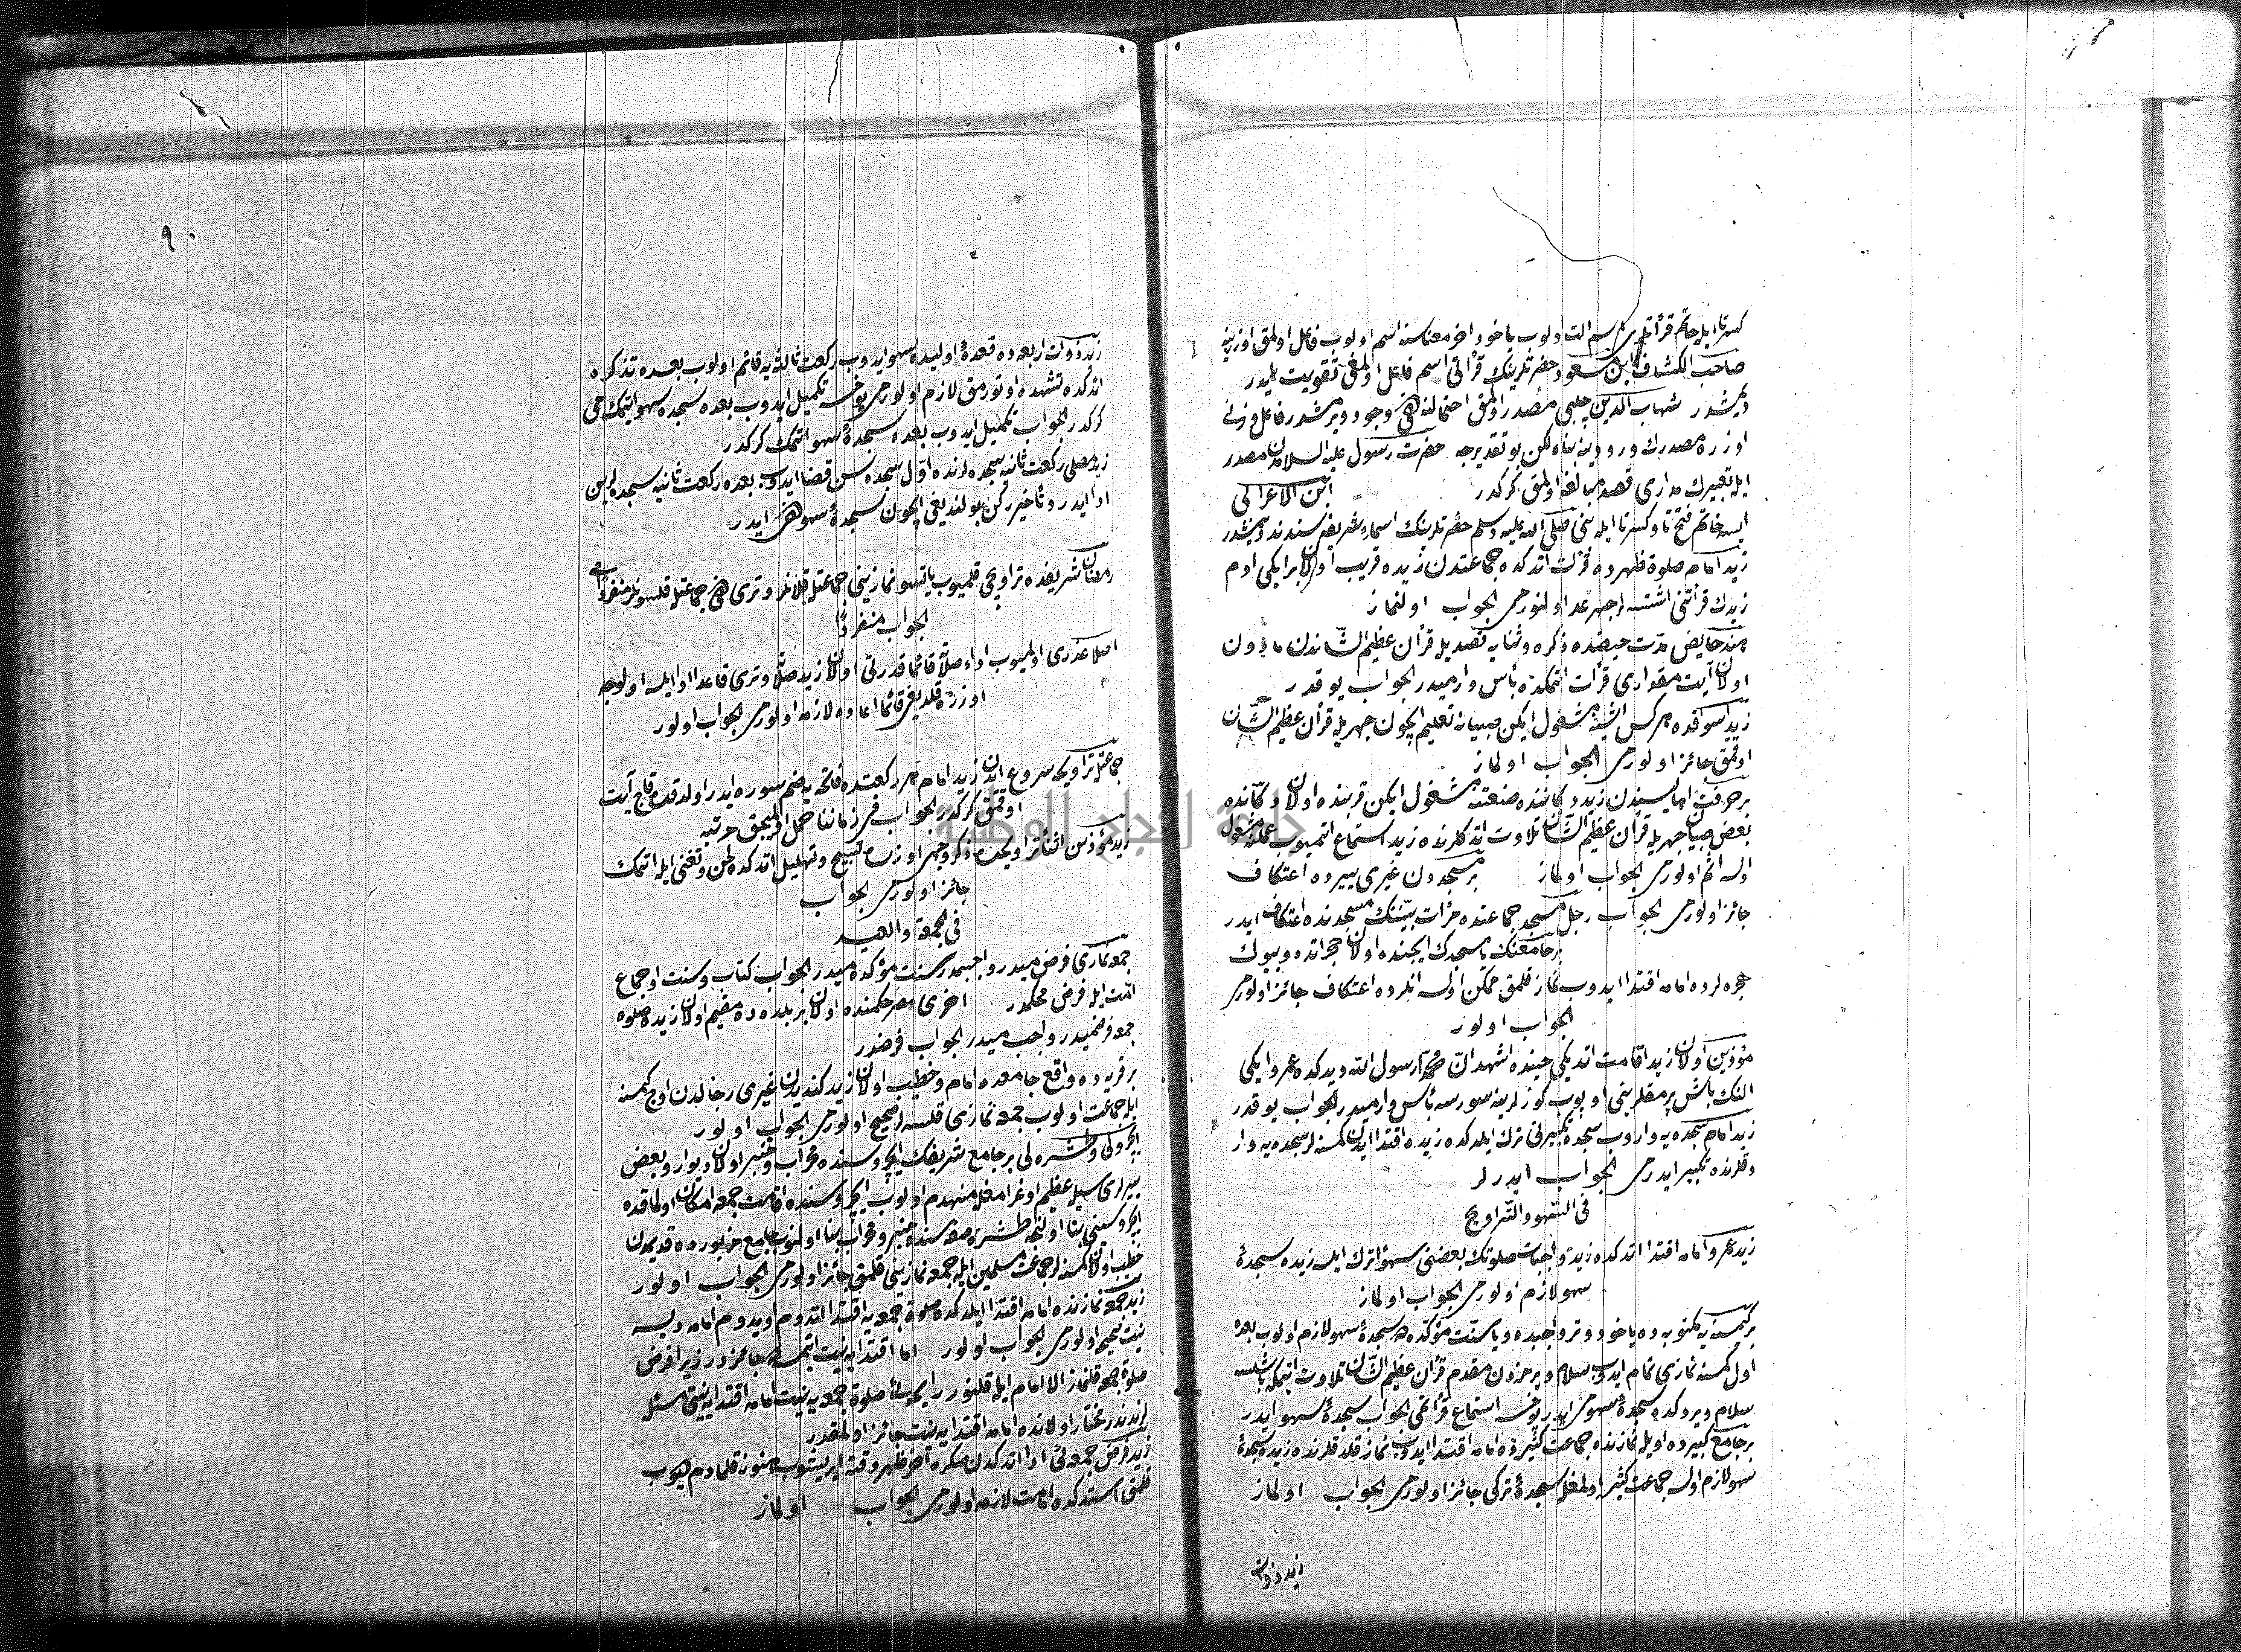 كسر تا ايله خاتم قرأتلرى اسم الت اولوب ياخود آخر معناسنه اسم اولوب فاعل اولمق اوزرينه
صاحب الكشاف ابن مسعود حضرتلرينك قرأتى اسم فاعل اولدغى تقويت ايلدر
ديمشدر شهاب الدين چلبى مصدر اولمق احتمالنه دخى وجود ويرمشدر فاعل وزنى
اوزره مصدرك ورودينه بناء لكن بو تقديرجه حضرت رسول عليه السلامدن مصدر
ايله تعبيرك مدارى قصد مبالغه اولمق كركدر ابن الاعرابى
ايسه خاتم فتح تا وكسر تا ايله نبى صلى الله عليه وسلم حضرتلرينك اسماء شريفه سندندر ديمشدر
زيد امام صلوة ظهرده قرأت اتدكده جماعتدن زيده قريب اولان بر ايكى ادم
زيدك قرأتنى اشتسه لر جهر عد اولنورمى الجواب اولنماز
هند حايض مدت حيضنده ذكر ودعا وثنايه قصديله قرآن عظيم الشاندن مادون
اولان آيت مقدارى قرأت اتمكده بأس وارميدر الجواب يوقدر
زيد اسوقده هركس ايشنه مشغول ايكن صبيانه تعليم ايچون جهريله قرآن عظيم الشان
اوقمق جائز اولورمى الجواب اولماز
بر حرفت اهاليسندن زيد دكاننده صنعتنه مشغول ايكن قربنده اولان دكانده
بعض صبيان جهريله قرآن عظيم الشان تلاوت اتدكلرنده زيد استماع اتميوب عملنه مشغول
اولسه اثم اولورمى الجواب اولماز بر مسجددن غيرى ييرده اعتكاف
جائز اولورمى الجواب رجل مسجد جماعتده مرأت بيتنك مسجدنده اعتكاف ايدر
بر جامعنك يا مسجدك ايچنده اولان حجراتده و بيوك
حجره لرده امامه اقتدا ايدوب نماز قلمق ممكن اولسه انلرده اعتكاف جائز اولورمى
الجواب اولور
مؤذن اولان زيد اقامت اتديكى حينده اشهد ان محمدا رسول الله ديدكده عمرو ايكى
النك باش پرمقلرينى اوپوب كوزلرينه سورسه بأس وارميدر الجواب يوقدر
زيد امام سجده يه واروب سجده تكبيرنى ترك ايلدكده زيده اقتدا ايدن كمسنه لر سجده يه وار
دقلرنده تكبير ايدرمى الجواب ايدرلر
فى السهو والتراويح
زيد عمرو امامه اقتدا اتدكده زيد واجبات صلوتك بعضنى سهوا ترك ايلسه زيده سجدهٔ
سهو لازم اولورمى الجواب اولماز
بر كمسنه يه مكتوبه ده ياخود وتر واجبده ويا سنت مؤكده ده سجدهٔ سهو لازم اولوب بعده
اول كمسنه نمازى تمام ايدوب سلام ويرمزدن مقدم قرآن عظيم الشان تلاوت اتمكه باشلسه
سلام ويردكده سجدهٔ سهومى ايدر يوخسه استماع قرأتمى الجواب سجدهٔ سهو ايدر
بر جامع كبيرده اويله نمازنده جماعت كثيره امامه اقتدا ايدوب نماز قلدقلرنده زيده سجدهٔ
سهو لازم اولسه جماعت كثير اولمغله سجدهٔ تركى جائز اولورمى الجواب اولماز
زيد ذوات
٩٠
زيد ذوات اربعه ده قعدهٔ اوليده سهو ايدوب ركعت ثالثه يه قائم اولوب بعده تذكر
اتدكده تشهده اوتورمق لازم اولورمى يوخسه تكميل ايدوب بعده سجده سهو ايتمكمى
كركدر الجواب تكميل ايدوب بعده سجدهٔ سهو اتمك كركدر
زيد مصلى ركعت ثانيه سجده لرنده اول سجده سن قضا ايدوب بعده ركعت ثانيه سجده لرين
ادا ايدر و تأخير ركن بولنديغى ايچون سجدهٔ سهو دخى ايدر
رمضان شريفده تراويحى قلميوب ياتسو نمازينى جماعتله قلانلر وترى دخى جماعتله قلسونلرمى منفردامى
الجواب منفردا
اصلا عذرى اولميوب اداء صلاته قائما قدرتى اولان زيد صلاة وترى قاعدا ادا ايلسه اول وجه
اوزره قلديغى قائما اعاده لازم اولورمى الجواب اولور
جماعتله تراويحه شروع ايدن زيد امام هر ركعتده فاتحه يه ضم سوره ايدر اولدقده قاچ آيت
اوقمق كركدر الجواب فى زماننا ثقل اولميجق مرتبه
زيد مؤذن اثناء تراويحده ذكر وجهر اوزره تسبيح وتهليل اتدكده لحن وتغنى ايله اتمك
جائز اولورمى الجواب
فى الجمعة والعيد
جمعه نمازى فرض ميدر واجبميدر سنت مؤكده ميدر الجواب كتاب وسنت واجماع
امت ايله فرض محكمدر اخرى مصر حكمنده اولان بر بلده ده مقيم اولان زيده صلوة
جمعه فرضميدر واجب ميدر الجواب فرضدر
بر قريه ده واقع جامعده امام وخطيب اولان زيد كنديدن غيرى رجالدن اوچ كمسنه
ايله جماعت اولوب جمعه نمازى قلسه لر صحيح اولورمى الجواب اولور
ايچرولى وطشره لى بر جامع شريفك ايچروسنده محراب ومنبر اولان ديوار وبعض
ييرلرى سيل عظيم اوغرامغله منهدم اولوب ايچروسنده اقامت جمعه امكان اولماقده
ايچروسينى بنا اولنجه طشره صفه سنده منبر ومحراب بنا اولنوب جامع مزبورده قديمدن
خطيب اولان كمسنه لر جماعت مسلمين ايله جمعه نمازينى قلمق جائز اولورمى الجواب اولور
زيد جمعه نمازنده امامه اقتدا ايلدكده صلوة جمعه يه اقتدا اتدم ويدوم امامه ديسه
نيت صحيح اولورمى الجواب اولور اما اقتدايه نيت ايتمسه جائزدر زيرا فرض
صلوة جمعه قلنماز الا امام ايله قلنور
لزيدندر مختار اولانده امامه اقتدايه نيت جائز اولمقدر
زيد فرض جمعه ئى ادا اتدكدن صكره آخر ظهر وقتنه ايريشوب هنوز قلمادم ديوب
قلمق استدكده اقامت لازم اولورمى الجواب اولماز